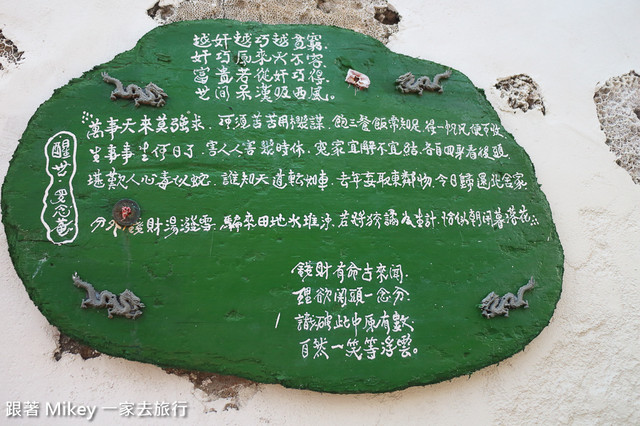 越奸越巧越貧窮.
奸巧原來天不容
富貴若從奸巧得.
世間呆漢吸西風。
萬事天來莫強求. 何須苦苦用機謀. 飽三餐飯常知足. 得一帆風便可收
生事事生何日了. 害人人害幾時休. 冤家宜解不宜結. 各自回頭看後頭
堪歎人心毒似蛇. 誰知天道轉如車. 去年妄取東鄰物. 今日歸還北舍家
財湯潑雪. 騙來田地水堆沙. 若將狡譎為生計. 恰似朝開暮落花
醒世.羅念菴
錢財有命古來聞.
理欲關頭一念分.
識破此中原有數
自然一笑等浮雲。
跟著 Mikey 一家去旅行